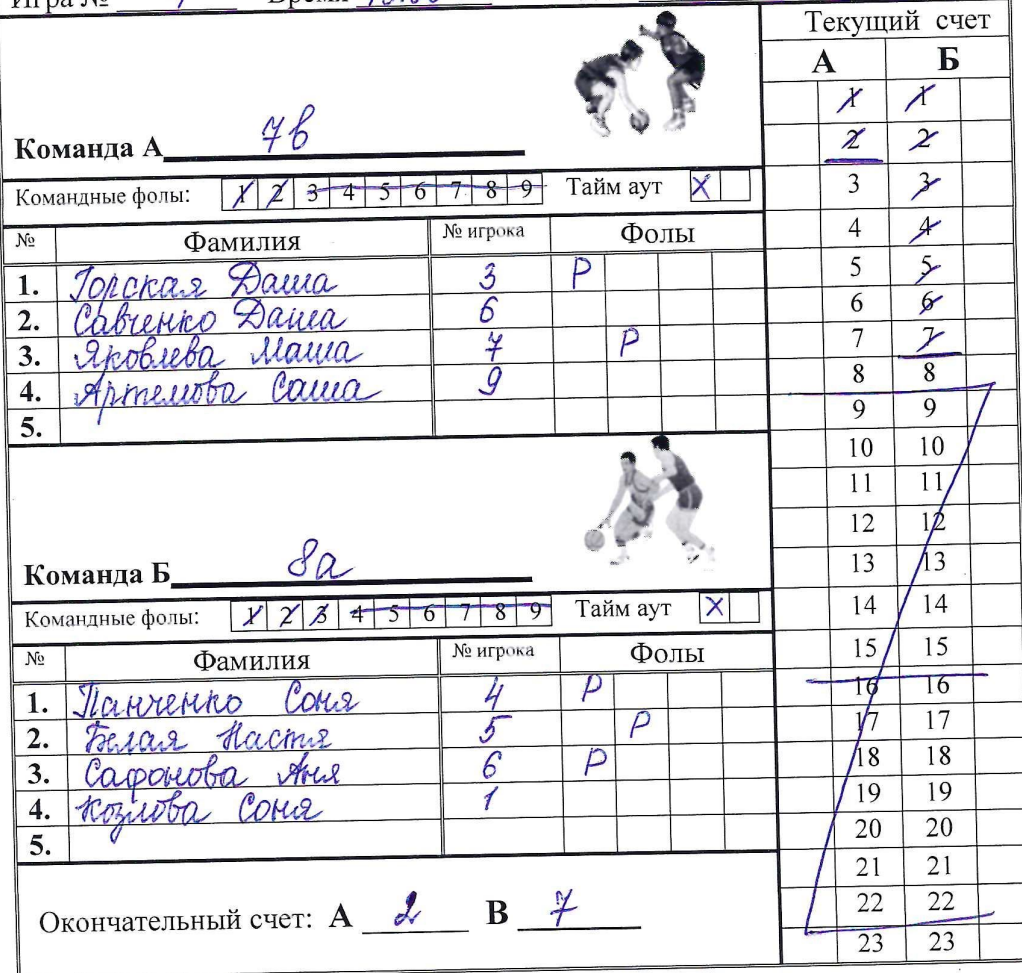 Игра № Время
Текущий счет
А Б
Команда А 7в
Командные фолы: 1 2 3 4 5 6 7 8 9 Тайм аут X
№ Фамилия № игрока Фолы
1. Горская Даша 3 P
2. Савченко Даша 6
3. Яковлева Маша 7 P
4. Артемова Саша 9
5.
Команда Б 8а
Командные фолы: 1 2 3 4 5 6 7 8 9 Тайм аут X
№ Фамилия № игрока Фолы
1. Панченко Соня 4 P
2. Белая Настя 5 P
3. Сафонова Аня 6 P
4. Козлова Соня 1
5.
Окончательный счет: А 2 В 7
1 1
2 2
3 3
4 4
5 5
6 6
7 7
8 8
9 9
10 10
11 11
12 12
13 13
14 14
15 15
16 16
17 17
18 18
19 19
20 20
21 21
22 22
23 23